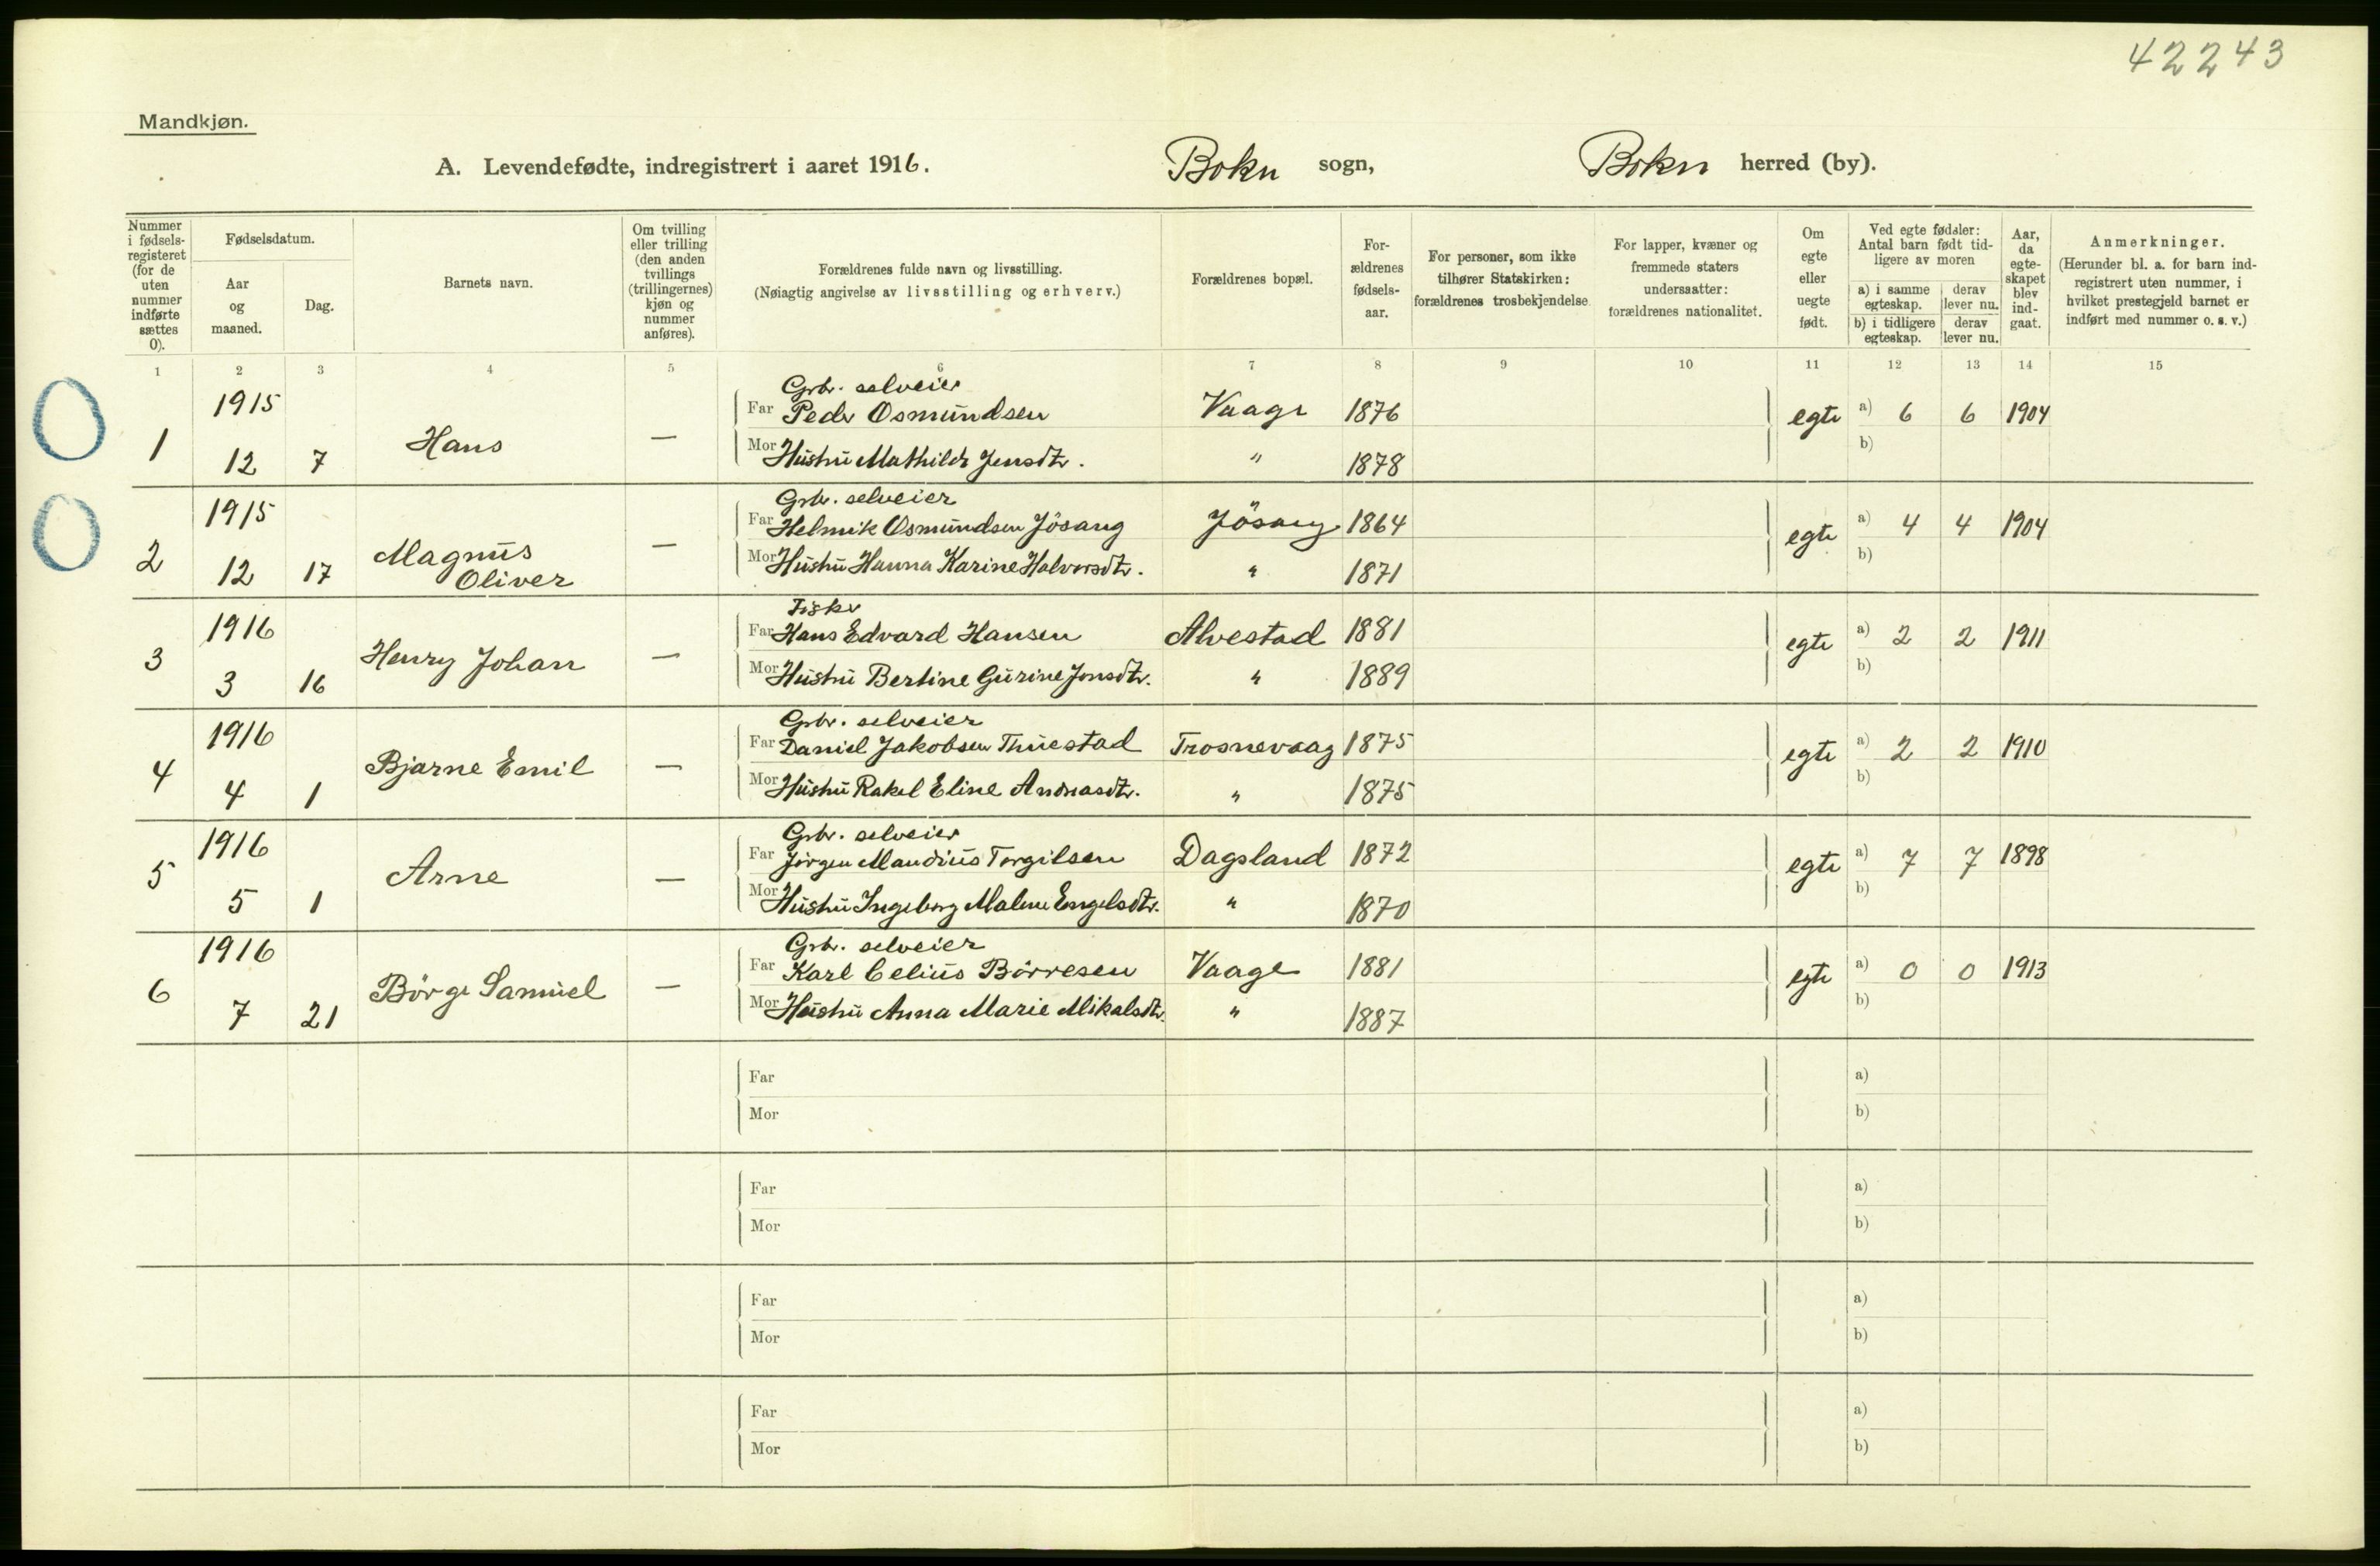 42243
Mandkjøn.
A. Levendefødte, indregistrert i aaret 1916. Bokn sogn, Bokn herred (by).
Nummer i fødsels-registeret (for de uten nummer indførte sættes 0).
Fødselsdatum.
Aar og maaned.
Dag.
Barnets navn.
Om tvilling eller trilling (den anden tvillings (trillingernes) kjøn og nummer anføres).
Forældrenes fulde navn og livsstilling.
(Nøiagtig angivelse av livsstilling og erhverv.)
Forældrenes bopæl.
For-ældrenes fødsels-aar.
For personer, som ikke tilhører Statskirken: forældrenes trosbekjendelse.
For lapper, kvæner og fremmede staters undersaatter: forældrenes nationalitet.
Om egte eller uegte født.
Ved egte fødsler: Antal barn født tid-ligere av moren
a) i samme egteskap.
derav lever nu.
b) i tidligere egteskap.
derav lever nu.
Aar, da egte-skapet blev ind-gaat.
Anmerkninger.
(Herunder bl. a. for barn ind-registrert uten nummer, i hvilket prestegjeld barnet er indført med nummer o. s. v.)
1 2 3 4 5 6 7 8 9 10 11 12 13 14 15
Grbr. selveier
1915 Far Peder Osmundsen Vaage 1876 egte a) 6 6 1904
0 1 Hans —
12 7 Mor Hustru Mathilde Jensdtr. " 1878 b)
Grbr. selveier
1915 Far Helmik Osmundsen Jösang Jösang 1864 egte a) 4 4 1904
0 2 Magnus —
12 17 Oliver Mor Hustru Hanna Karine Halvorsdtr. " 1871 b)
Fisker
1916 Far Hans Edvard Hansen Alvestad 1881 egte a) 2 2 1911
3 Henry Johan —
3 16 Mor Hustru Bertine Gurine Jonsdtr. " 1889 b)
Grbr. selveier
1916 Far Daniel Jakobsen Thuestad Trosnevaag 1875 egte a) 2 2 1910
4 Bjarne Emil —
4 1 Mor Hustru Rakel Eline Andreasdtr. " 1875 b)
Grbr. selveier
1916 Far Jörgen Maudius Torgilsen Dagsland 1872 egte a) 7 7 1898
5 Arne —
5 1 Mor Hustru Ingeborg Malene Engelsdtr. " 1870 b)
Grbr. selveier
1916 Far Karl Celius Börresen Vaage 1881 egte a) 0 0 1913
6 Börge Samuel —
7 21 Mor Hustru Anna Marie Mikalsdtr. " 1887 b)
Far a)
Mor b)
Far a)
Mor b)
Far a)
Mor b)
Far a)
Mor b)